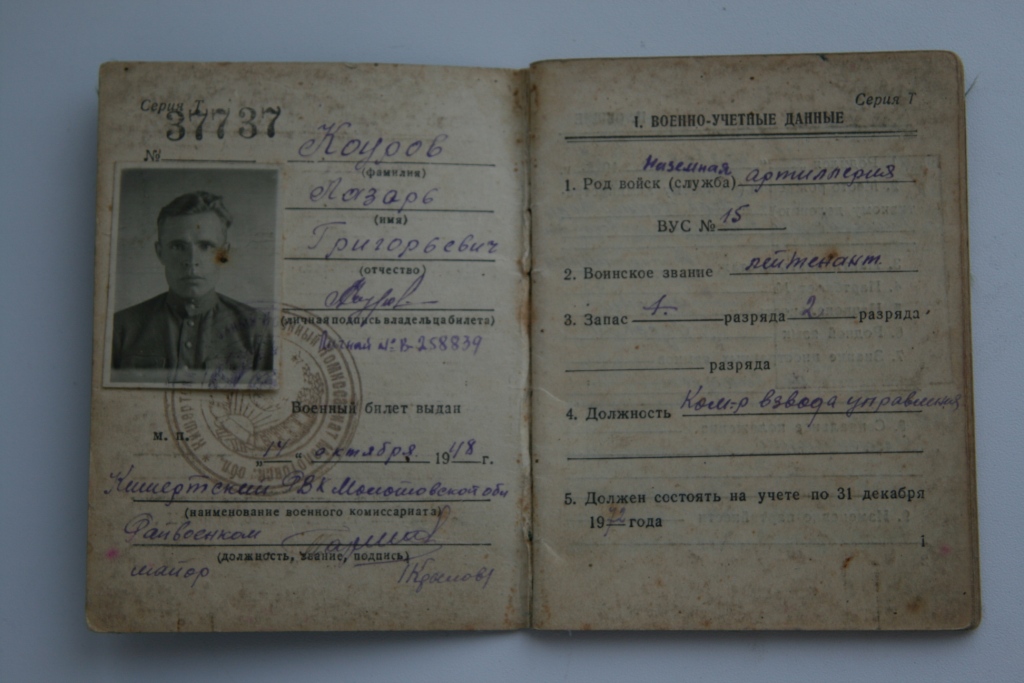 Серия Т
37737
№
Коуров
(фамилия)
Лазарь
(имя)
Григорьевич
(отчество)
(личная подпись владельца билета)
Личный № В-258839
Военный билет выдан
М. П.
„14“ октября 1948 г.
Кишертский РВК Молотовской обл
(наименование военного комиссариата)
Райвоенком
(должность, звание, подпись)
майор /Крылов/
Серия Т
1. ВОЕННО-УЧЕТНЫЕ ДАННЫЕ
Наземная
1. Род войск (служба) артиллерия
ВУС № 15
2. Воинское звание лейтенант
3. Запас 1. разряда 2 разряда
разряда
4. Должность Ком-р взвода управления
5. Должен состоять на учете по 31 декабря
19 года
1